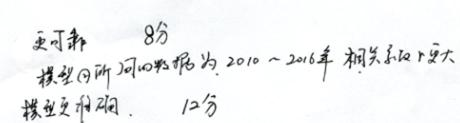 更可靠 8分
模型②所用的数据为2010~2016年 相关系数r更大
模型更准确. 12分